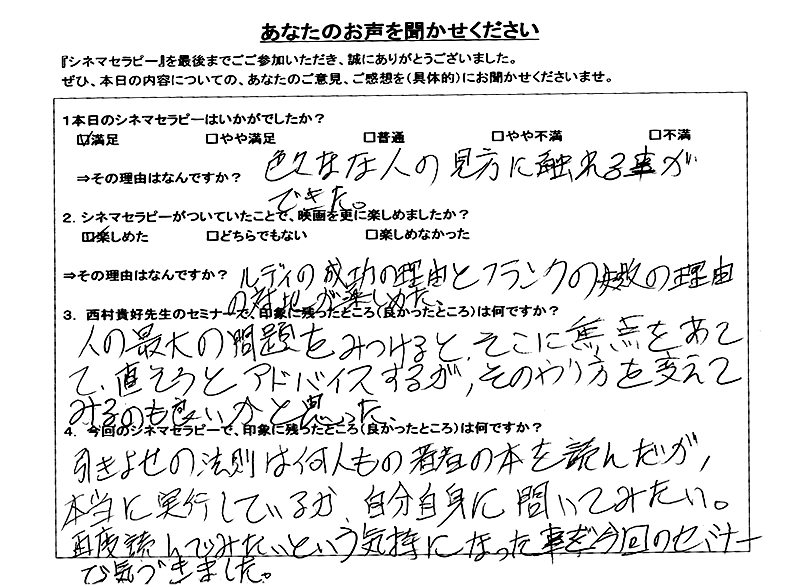 あなたのお声を聞かせください
『シネマセラピー』を最後までごご参加いただき、誠にありがとうございました。
ぜひ、本日の内容についての、あなたのご意見、ご感想を(具体的)にお聞かせくださいませ。
1本日のシネマセラピーはいかがでしたか？
☑満足 □やや満足 □普通 □やや不満 □不満
⇒その理由はなんですか？ 色々なな人の見方に触れる事が
できた。
2．シネマセラピーがついていたことで、映画を更に楽しめましたか？
☑楽しめた □どちらでもない □楽しめなかった
⇒その理由はなんですか？ ルディの成功の理由とフランクの失敗の理由
の対比が楽しめた、
3．西村貴好先生のセミナーで、印象に残ったところ(良かったところ)は何ですか？
人の最大の問題をみつけると、そこに焦点をあて
て、直そうとアドバイスするが、そのやり方を変えて
みるのも良いかと思った、
4．今回のシネマセラピーで、印象に残ったところ(良かったところ)は何ですか？
引きよせの法則は何人もの著者の本を読んだが、
本当に実行しているか、自分自身に問いてみたい。
再度読んでみたいという気持になった事を今回のセミナー
で気づきました。